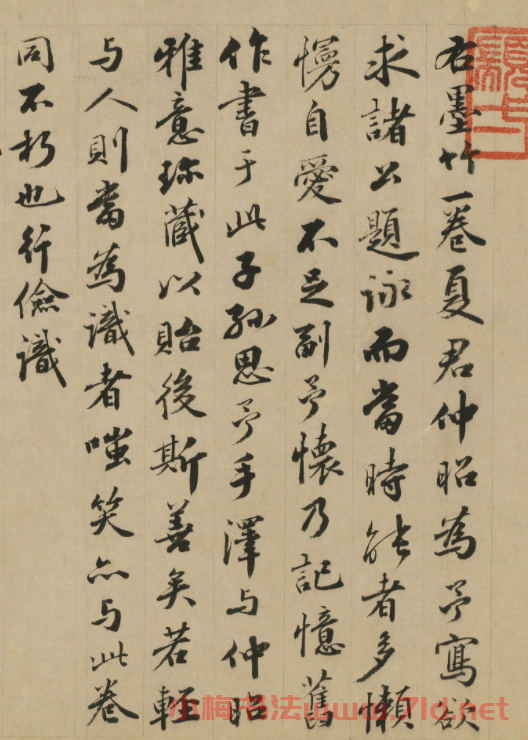 右墨竹一卷夏君仲昭為予寫欲
求諸公題詠而當時能者多懶
慢自愛不足副予懷乃記憶舊
作書于此子孫思予手澤与仲昭
雅意珎藏以貽後斯善矣若輕
与人則當為識者嗤笑亦与此卷
同不朽也行儉識
小梅书法www.7ld.net